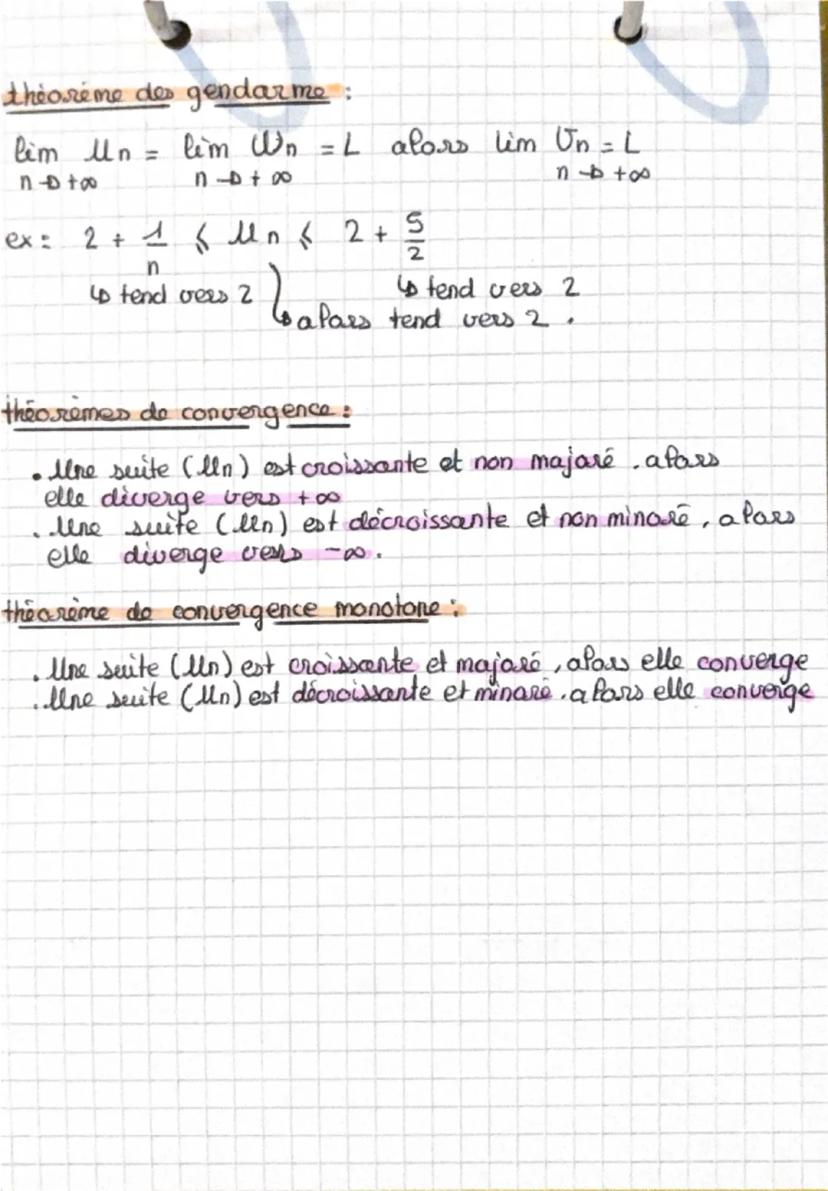 théorème des gendarme :
lim Un = lim Wn = L alors lim Vn = L
n→+∞ n→+∞ n→+∞
ex : 2 + 1/n ≤ Un ≤ 2 + 5/2
↳ tend vers 2 ↳ tend vers 2
↳ alors tend vers 2 .
théorèmes de convergence :
• Une suite (Un) est croissante et non majoré . alors
elle diverge vers +∞
. Une suite (Un) est décroissante et non minoré , alors
elle diverge vers -∞ .
théorème de convergence monotone :
. Une suite (Un) est croissante et majoré , alors elle converge
. Une suite (Un) est décroissante et minoré . alors elle converge